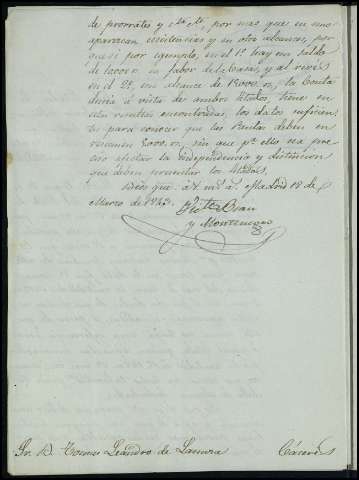 de prorratéo y &ª &ª, por mas que en unos
aparezcan existencias y en otro alcances, por
que si por egemplo, en el 1º hay un saldo
de 10000 rs. á fabor del Cesar, y al revés
en el 2º, un alcance de 13000 rs., la Conta
duria á vista de ambos estados, tiene en
esos resultados encontrados, los datos suficien
tes para conocer que las Rentas deben en
resumen 3000 rs. sin que pr. ello sea pre
ciso afectar la independencia y distincion
que deben presentar los Estados.
Dios gue. á V. ms. as. Madrid 18 de
Marzo de 1843.
y Montenegro
Sr. D. Tomas Leandro de Lamora
Cáceres